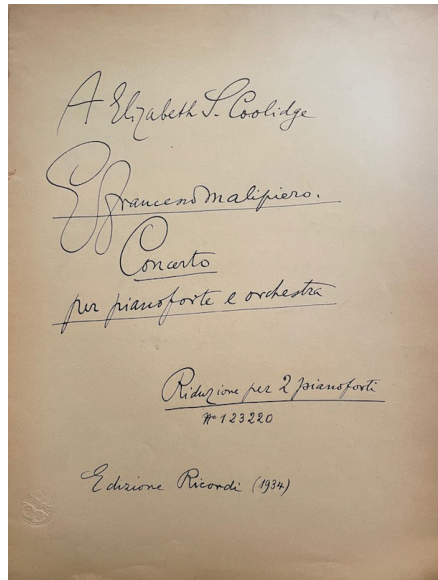 A Elizabeth S. Coolidge
G Francesco Malipiero.
Concerto
per pianoforte e orchestra
Riduzione per 2 pianoforti
No 123220
Edizione Ricordi (1934)